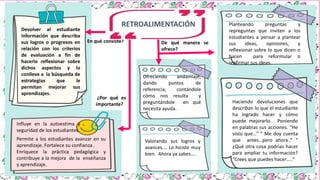 RETROALIMENTACIÓN
Devolver al estudiante
información que describa
sus logros o progresos en
relación con los criterios
de evaluación a fin de
hacerlo reflexionar sobre
dichos aspectos y lo
conlleve a la búsqueda de
estrategias que le
permitan mejorar sus
aprendizajes.
En qué consiste?
De qué manera se
ofrece?
Planteando preguntas y
repreguntas que inviten a los
estudiantes a pensar a plantear
sus ideas, opiniones, y
reflexionar sobre lo que dicen o
hacen para reformular o
reafirmar sus ideas.
Ofreciendo andamiaje
dando puntos de
referencia, contándole
cómo nos resulta y
preguntándole en qué
necesita ayuda.
¿Por qué es
importante?
Influye en la autoestima
seguridad de los estudiantes
Permite a los estudiantes avanzar en su
aprendizaje. Fortalece su confianza.
Enriquece la práctica pedagógica y
contribuye a la mejora de la enseñanza
y aprendizaje.
Valorando sus logros y
avances…. Lo hiciste muy
bien. Ahora ya sabes….
Haciendo devoluciones que
describan lo que el estudiante
ha logrado hacer y cómo
puede mejorarlo. Poniendo
en palabras sus acciones. "He
visto que…" " Me doy cuenta
que antes..pero ahora.." "
¿Qué otra cosa podrías hacer
para ampliar tu información?
"Crees que puedes hacer…."